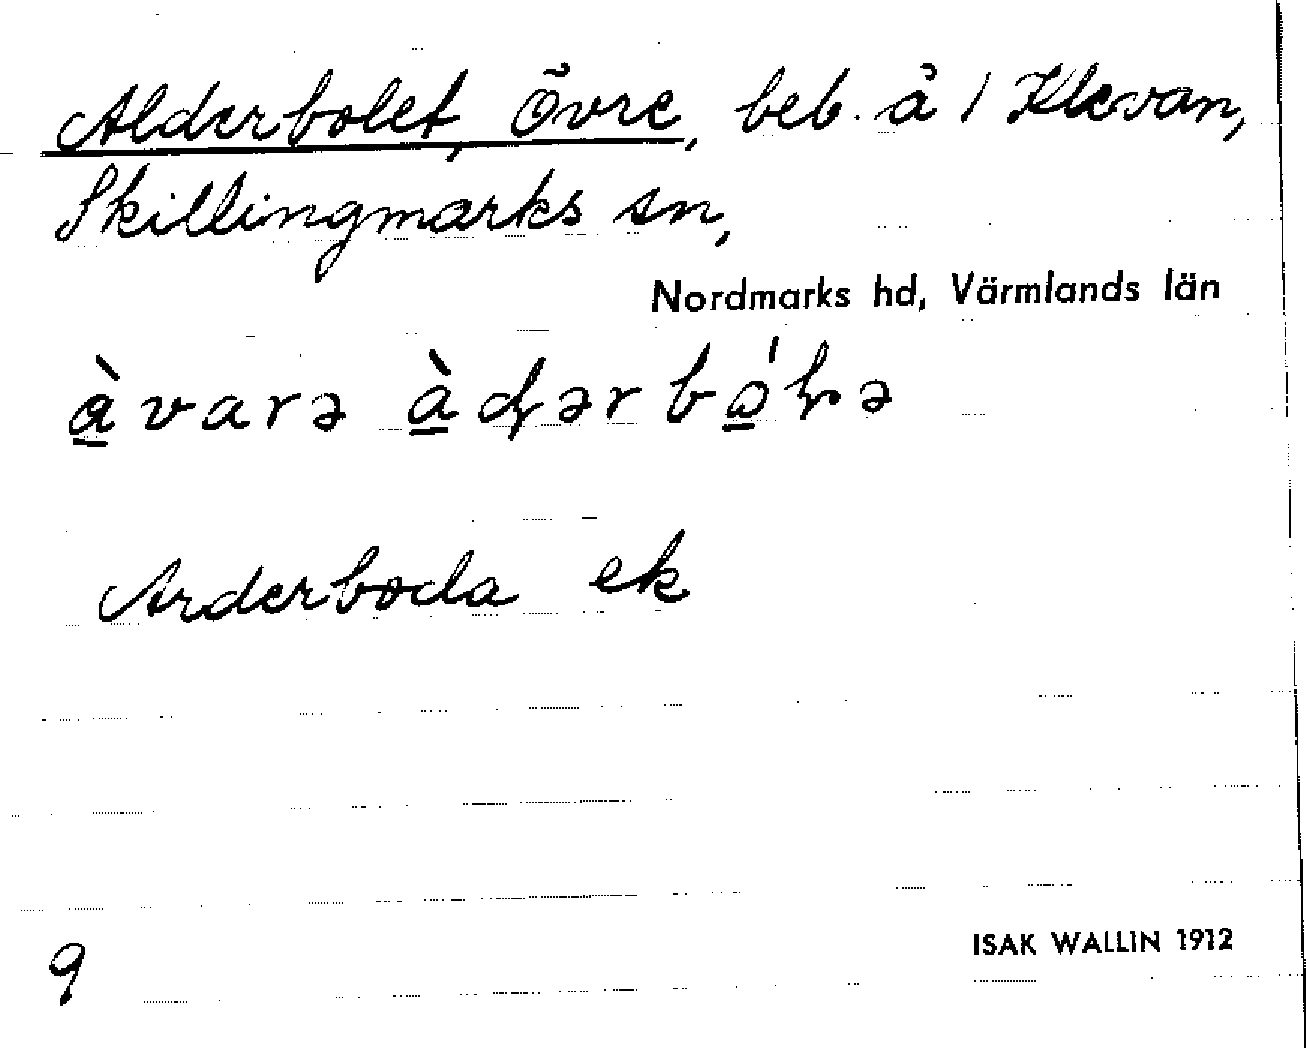 Alderbolet, Övre, beb. å 1 Klevan,
Skillingmarks sn,
Nordmarks hd, Värmlands län
Arderboda ek
9
ISAK WALLIN 1912